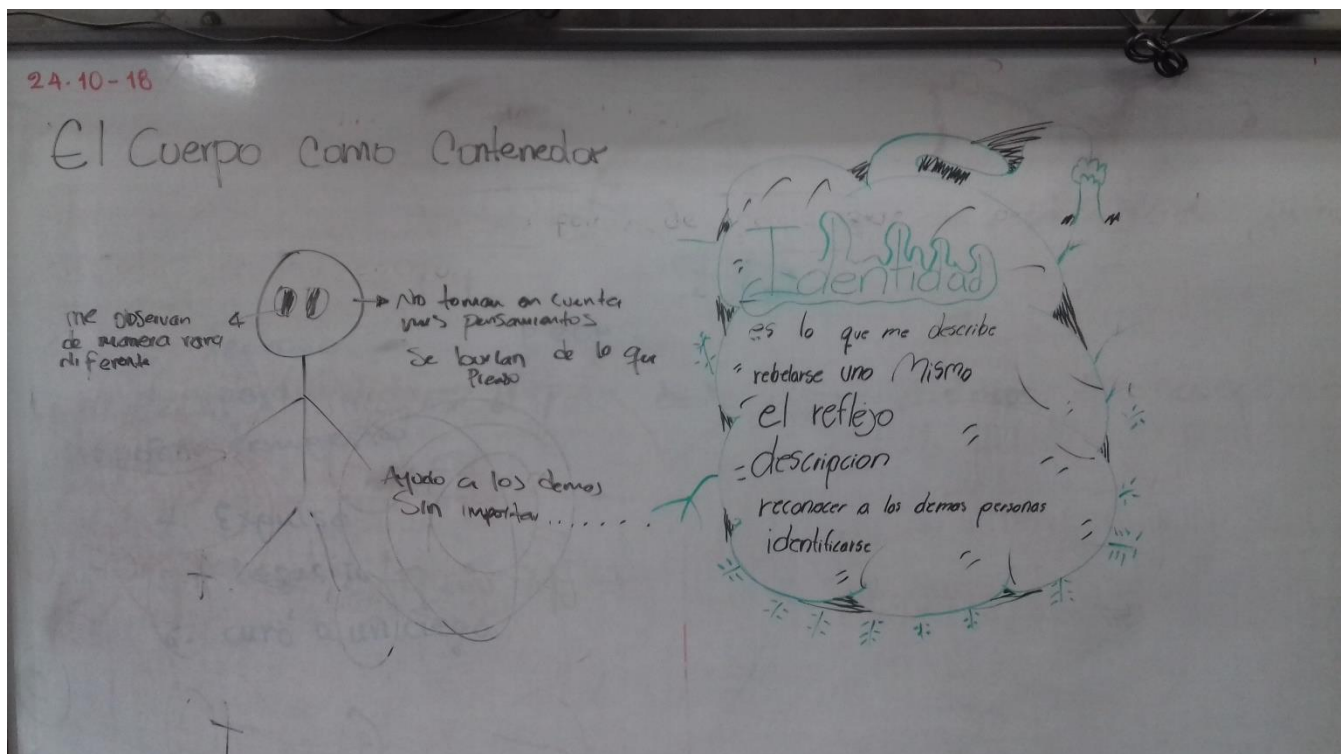 24-10-18
El Cuerpo Como Contenedor
me observan
de manera rara
diferente
No toman en cuenta
mis pensamientos
Se burlan de lo que
Pienso
Ayudo a los demas
Sin importar........
Identidad
es lo que me describe
rebelarse uno Mismo
el reflejo
descripcion
reconocer a los demas personas
identificarse